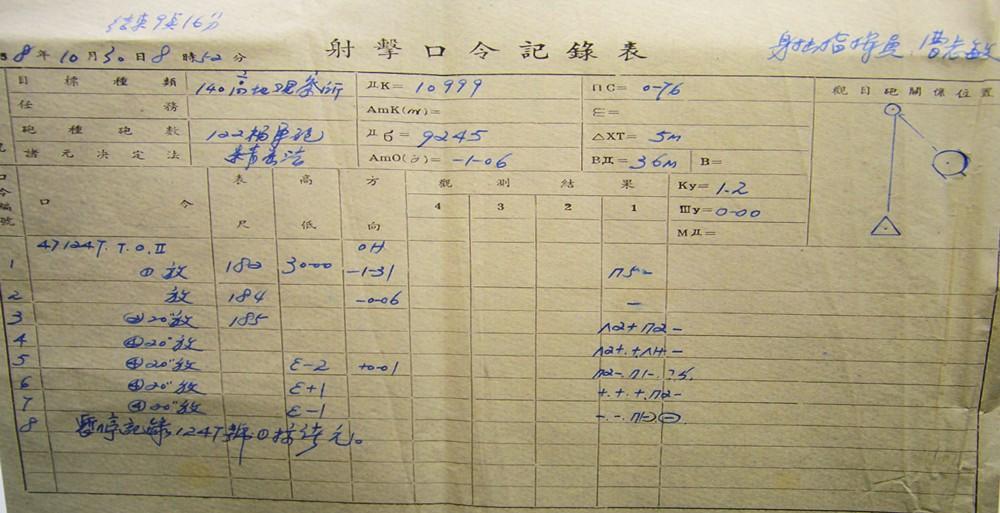 结束9点16分
58年10月30日8時52分 射擊口令記錄表 射击指挥員
目標種類 140高地观察所 ДК= 10999 ПС= 0-76 觀目砲關係位置
任務 АmK(м)= Ɛ=
砲種砲數 122榴弹砲 Дб= 9245 △XT= 5м
諸元決定法 АmO(∂)= -1-06 ВД= 36м В=
口令編號 口令 表尺 高低 方向 觀測結果 4 3 2 1 Ку= 1-2
Шу= 0-00
МД=
47124T. T. O. II ОН
1 ① 放 182 30-00 -1-31 П5-
2 放 184 -0-06 -
3 ②20"放 185 Л2+ П2-
4 ④20"放
5 ④20"放 Ɛ-2 +0-01
6 ④20"放 Ɛ+1 +.+.+.П2-
7 ④20"放 Ɛ-1
8 暫停記錄124T號①按諸元。